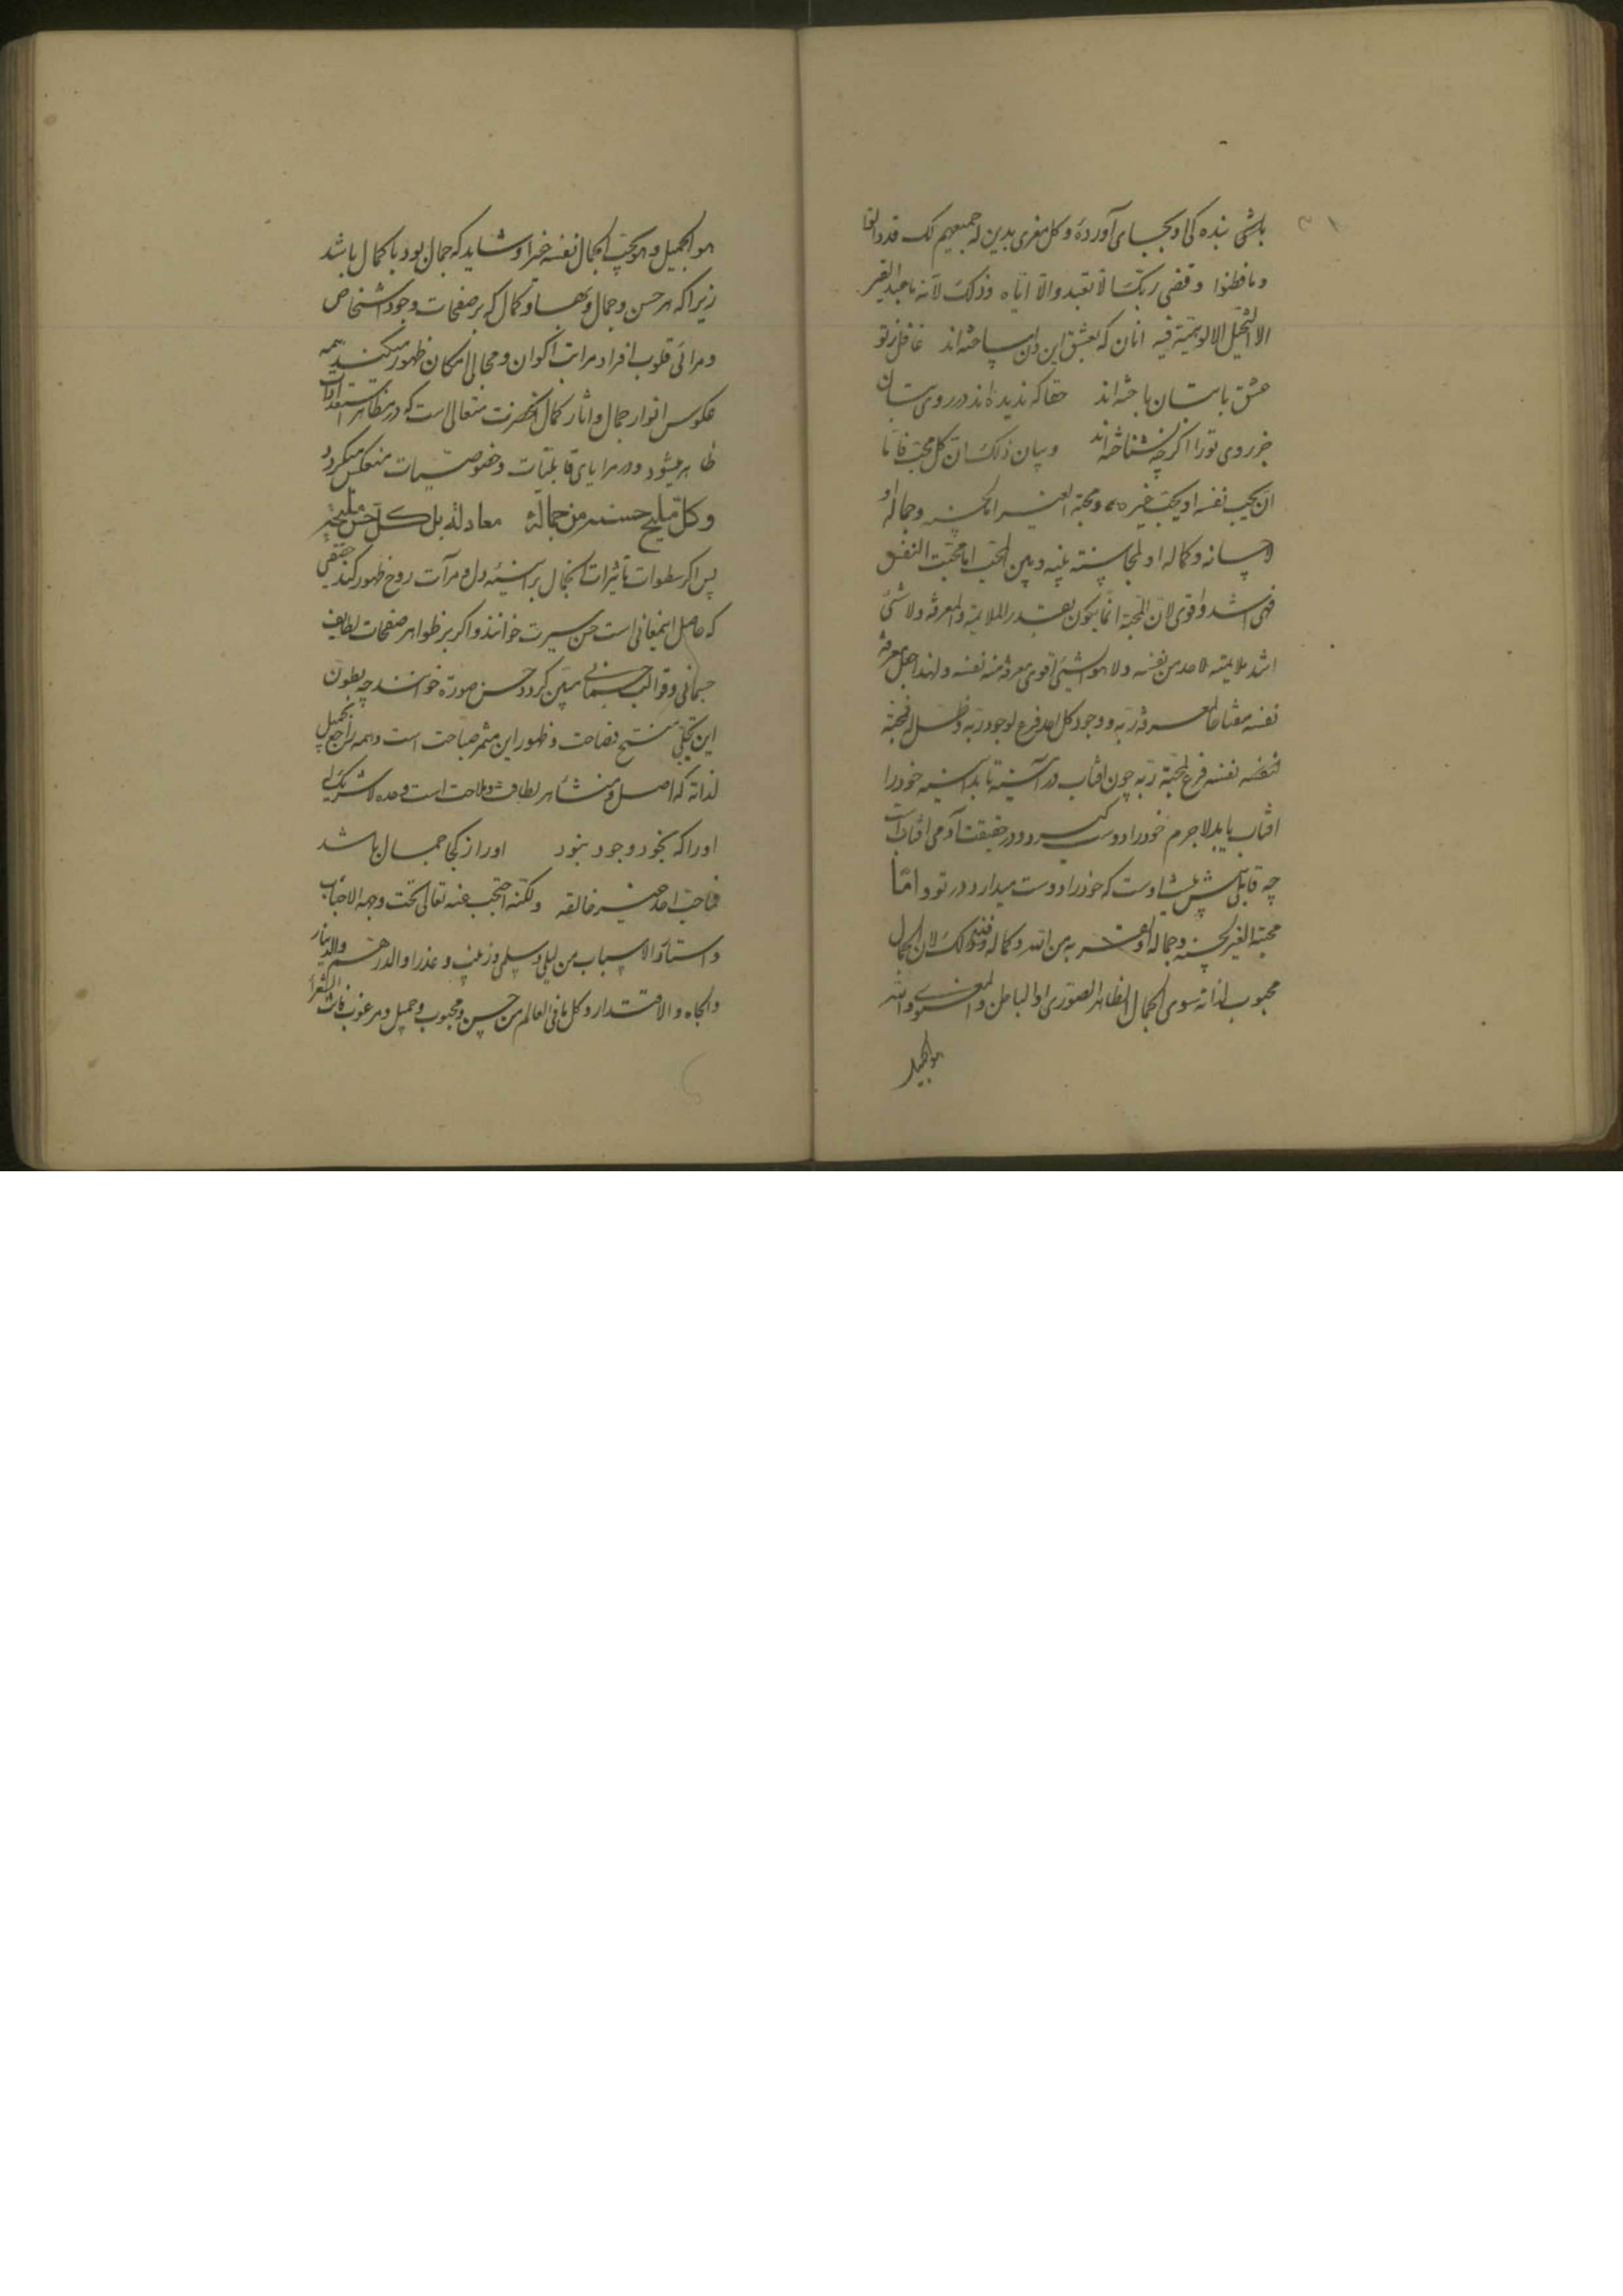 باشی بنده کی او بجای آورده و کل مغری بدین له جمیعهم لک قد دانوا
وما فطنوا وقضی ربک الا تعبدوا الا ایاه وذلک لانه ما عبد الغیر
الا لتخیل الالوهیة فیه آنان که بعشق این و آن ساخته‌اند غافل ز تو
عشق با بتان باخته‌اند حقا که ندیده‌اند در روی بتان
جز روی تو را اگرچه نشناخته‌اند وبیان ذلک ان کل محب فاما
ان یحب نفسه او یحب غیره ومحبة الغیر اما لحسنه وجماله او
لاحسانه وکماله او لمجانسته بینه وبین المحب اما محبت النفس
فهی اشد واقوی لان المحبة انما یکون بقدر الملایمة والمعرفة ولا شئ
اشد ملایمة لاحد من نفسه ولا هو لشیئ اقوی معرفة منه نفسه ولهذا جعل معرفة
نفسه مفتاحا لمعرفة ربه ووجود کل احد فرع لوجود ربه وظل له فمحبة
نفسه فرع لمحبة ربه چون آفتاب در آیینه تابد آیینه خود را
آفتاب یابد لاجرم خود را دوست گیرد و در حقیقت آدمی
چه قابلیتش اوست که خود را دوست میدارد در تو واما
محبة الغیر لحسنه وجماله او وکماله فذلک لان الجمال
محبوب لذاته سوی الجمال الظاهر الصوری او الباطن والمعنوی والله
هو الجمیل
هو الجمیل وهو یحب الجمال نفسه جز او شاید که جمال بود یا کمال باشد
زیرا که هر حسن وجمال وبهاء وکمال که بر صفحات وجود اشخاص
ومرائی قلوب افراد مراتب اکوان ومجالی امکان ظهور میکند همه
عکوس انوار جمال وآثار کمال آنحضرت متعالی است که در مظاهر استعدادات
ظاهر میشود ودر مرایای قابلیات وخصوصیات منعکس میگردد
وکل ملیح حسنه من جماله معار له بل حسن کل ملیحة
پس اگر سطوات تأثیرات آنجمال بر آیینه دل ومرآت روح ظهور کند حقیقی
که حاصل اینمعانی است حسن سیرت خوانند واگر بر ظواهر صفحات لطایف
جسمانی وقوالب جسمانی مبین گردد حسن صورة خوانند چه بطون
این تجلی منتج فصاحت وظهور این مثمر صباحت است وهمه راجع بجمیل
لذاته که اصل ومنشاء هر لطافت وملاحت است وحده لا شریک له
او را که بخود وجود نبود او را ز کجا جمال باشد
فما احب احد غیر خالقه ولکنه احتجب عنه تعالی تحت وجه الاحباب
واستار الاسباب من لیلی وسلمی وزینب وعذرا والدرهم والدینار
والجاه والاقتدار وکل ما فی العالم من حسن ومحبوب وجمیل ومرغوب فافنت الشعرا